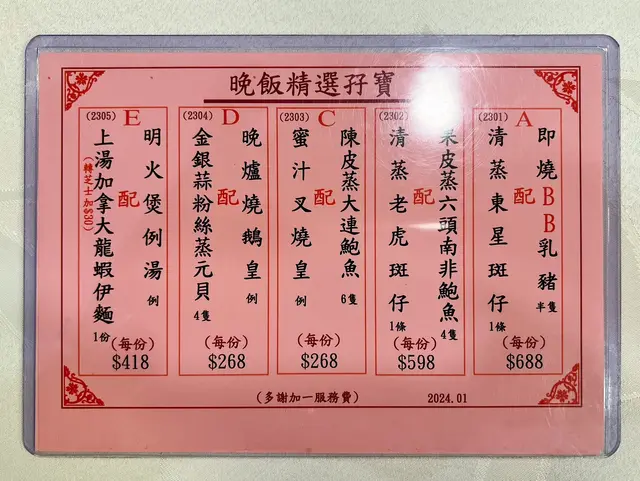 晚飯精選孖寶
(2301) A
即燒BB乳豬 半隻
配
清蒸東星斑仔 1條
(每份)
$688
(2302)
果皮蒸六頭南非鮑魚 4隻
配
清蒸老虎斑仔 1條
(每份)
$598
(2303) C
陳皮蒸大連鮑魚 6隻
配
蜜汁叉燒皇 例
(每份)
$268
(2304) D
晚爐燒鵝皇 例
配
金銀蒜粉絲蒸元貝 4隻
(每份)
$268
(2305) E
明火煲例湯 例
配
上湯加拿大龍蝦伊麵 1份
(轉芝士加$30)
(每份)
$418
(多謝加一服務費)
2024.01